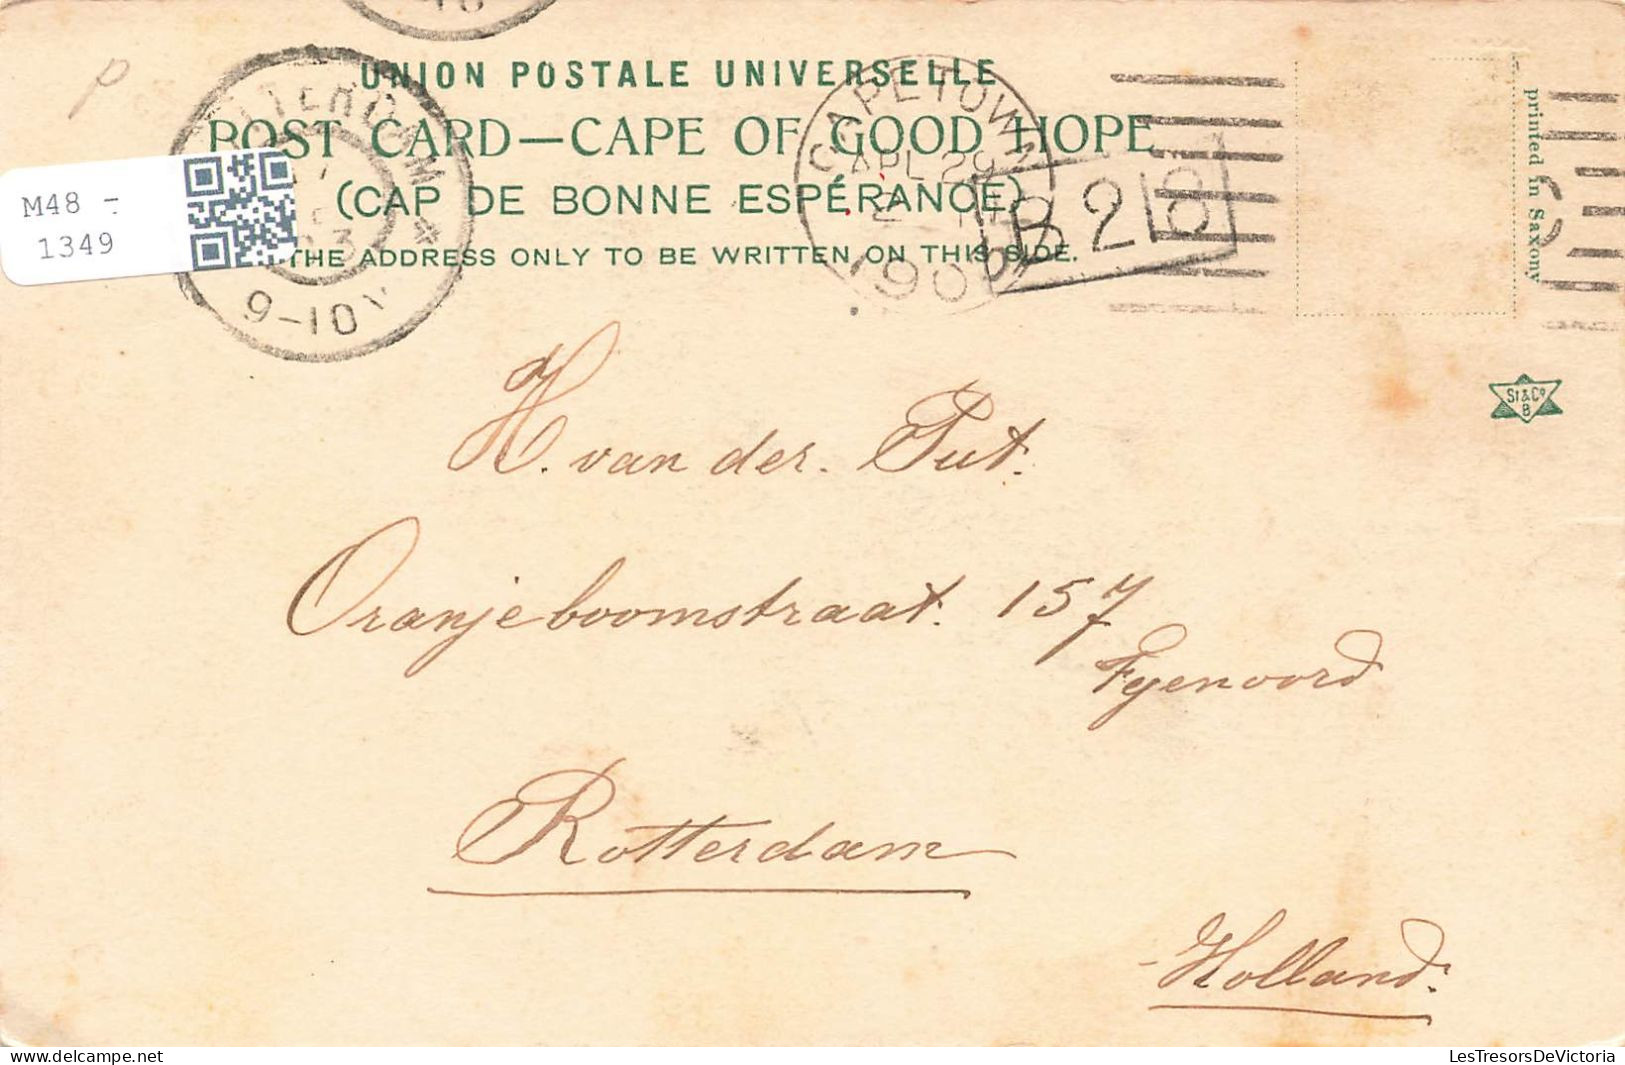 UNION POSTALE UNIVERSELLE
POST CARD—CAPE OF GOOD HOPE
(CAP DE BONNE ESPÉRANCE)
THE ADDRESS ONLY TO BE WRITTEN ON THIS SIDE.
9-10
CAPETOWN
APL 29
190
B 2
printed in Saxony
St & Co
B
M48 -
1349
H. van der. Put.
Oranjeboomstraat. 157
Fyenoord
Rotterdam
- Holland.
LesTresorsDeVictoria.com